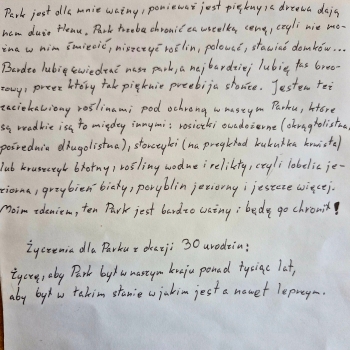 Park jest dla mnie ważny, ponieważ jest piękny, a drzewa dają
nam dużo tlenu. Park trzeba chronić za wszelką cenę, czyli nie mo-
żna w nim śmiecić, niszczyć roślin, polować, stawiać domków...
Bardzo lubię zwiedzać nasz park, a najbardziej lubię las brzo-
zowy, przez który tak pięknie przebija słońce. Jestem też
zaciekawiony roślinami pod ochroną w naszym Parku, które
są rzadkie i są to między innymi: rosiczki owadożerne (okrągłolistna,
pośrednia długolistna), storczyki (na przykład kukułka krwista)
lub kruszczyk błotny, rośliny wodne i relikty, czyli lobelia je-
ziorna, grzybień biały, poryblin jeziorny i jeszcze więcej.
Moim zdaniem, ten Park jest bardzo ważny i będę go chronił!
Życzenia dla Parku z okazji 30 urodzin:
Życzę, aby Park był w naszym kraju ponad tysiąc lat,
aby był w takim stanie w jakim jest a nawet lepszym.